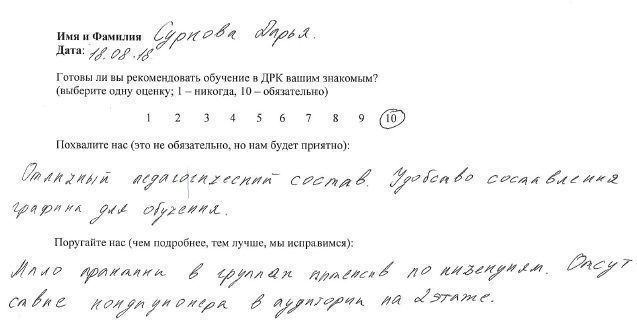 Имя и Фамилия Суркова Дарья.
Дата: 18.08.18
Готовы ли вы рекомендовать обучение в ДРК вашим знакомым?
(выберите одну оценку; 1 – никогда, 10 – обязательно)
1 2 3 4 5 6 7 8 9 10
Похвалите нас (это не обязательно, но нам будет приятно):
Отличный педагогический состав. Удобство составления
графика для обучения.
Поругайте нас (чем подробнее, тем лучше, мы исправимся):
Мало практики в группах интенсив по
Отсут
ствие кондиционера в аудитории на 2 этаже.